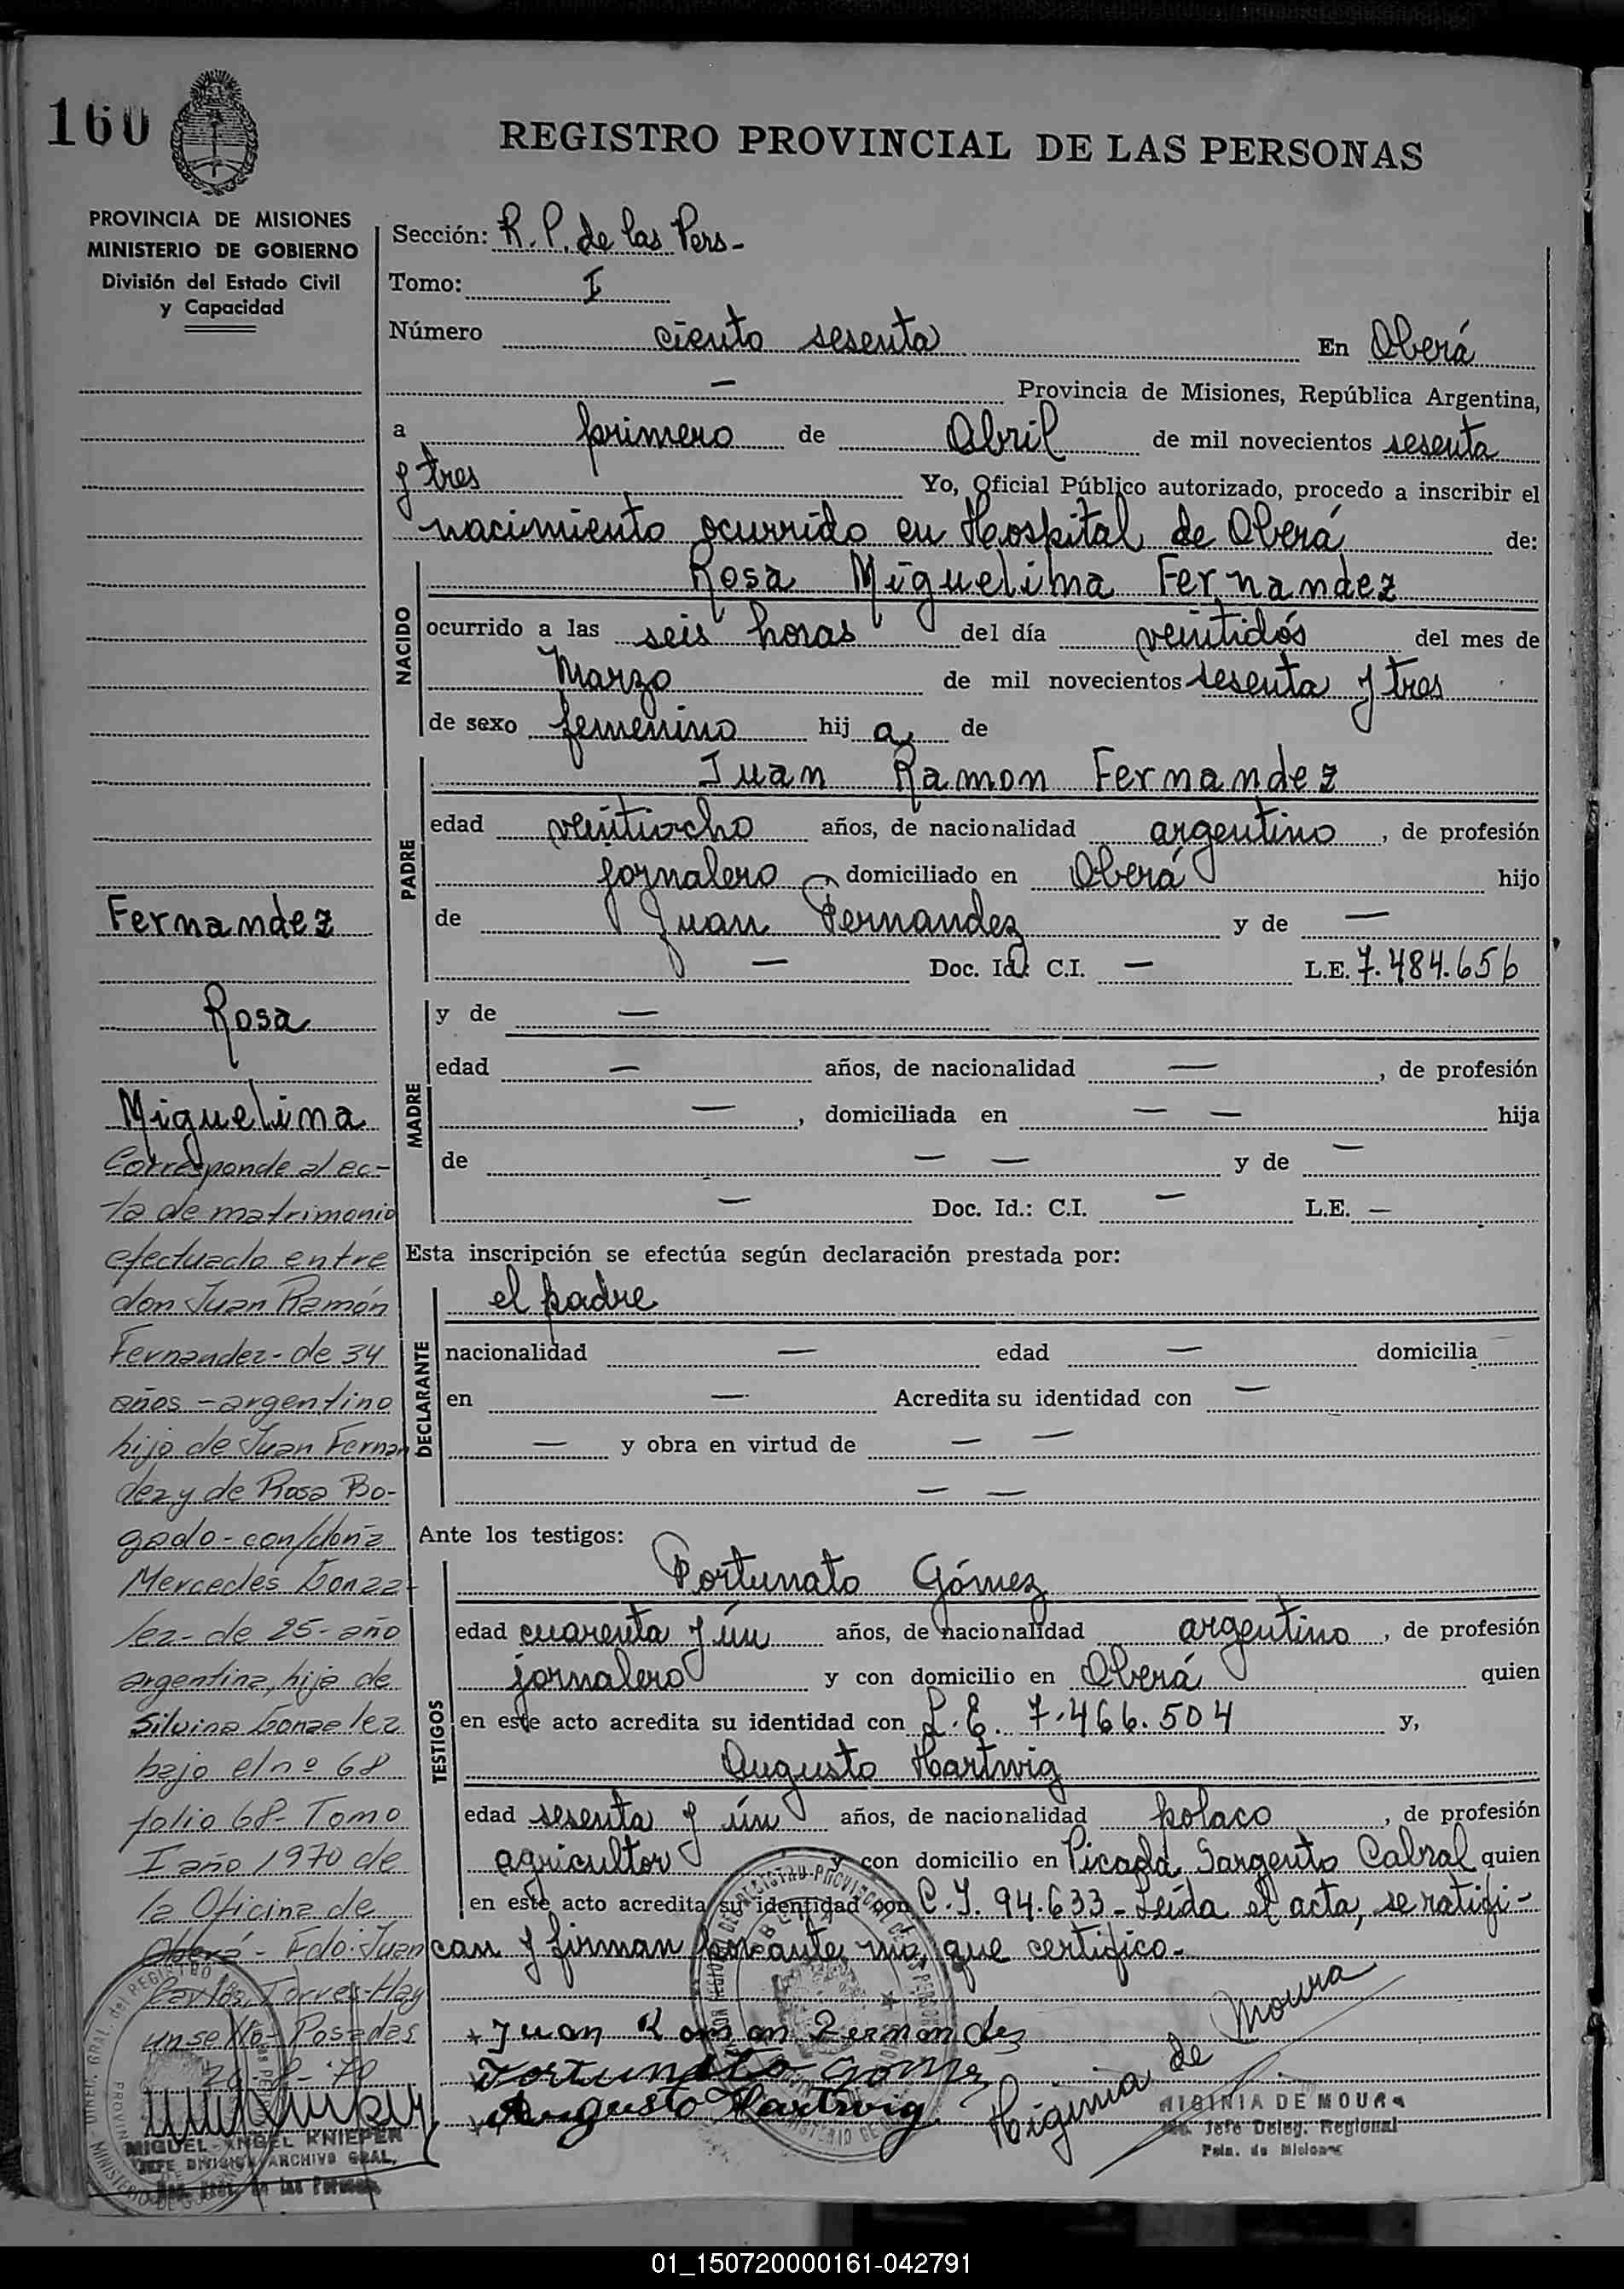 160
REGISTRO PROVINCIAL DE LAS PERSONAS
PROVINCIA DE MISIONES
MINISTERIO DE GOBIERNO
División del Estado Civil
y Capacidad
Sección: R. P. de las Pers-
Tomo: I
Número ciento sesenta En Oberá
— Provincia de Misiones, República Argentina,
a primero de Abril de mil novecientos sesenta
y tres Yo, Oficial Público autorizado, procedo a inscribir el
nacimiento ocurrido en Hospital de Oberá de:
NACIDO
Rosa Miguelina Fernandez
ocurrido a las seis horas del día veintidós del mes de
Marzo de mil novecientos sesenta y tres
de sexo femenino hij a de
PADRE
Juan Ramon Fernandez
edad veintiocho años, de nacionalidad argentino, de profesión
jornalero, domiciliado en Oberá hijo
de Juan Fernandez y de —
— Doc. Id.: C.I. — L.E. 7.484.656
MADRE
y de —
edad — años, de nacionalidad —, de profesión
—, domiciliada en — — hija
de — — y de —
— Doc. Id.: C.I. — L.E. —
Esta inscripción se efectúa según declaración prestada por:
DECLARANTE
el padre
nacionalidad — edad — domicilia
en — Acredita su identidad con —
— y obra en virtud de — —
— —
Ante los testigos:
TESTIGOS
Fortunato Gómez
edad cuarenta y ún años, de nacionalidad argentino, de profesión
jornalero y con domicilio en Oberá quien
en este acto acredita su identidad con L.E. 7.466.504 y,
Augusto Hartwig
edad sesenta y ún años, de nacionalidad polaco, de profesión
agricultor y con domicilio en Picada Sargento Cabral quien
en este acto acredita su identidad con C.I. 94.633 - Leída el acta, se ratifi-
can y firman por ante mí, que certifico.-
Juan Ramon Fernandez
Fortunato Gomez
Augusto Hartwig
Higinia de Moura
HIGINIA DE MOURA
Jefe Deleg. Regional
Pcia. de Misiones
Fernandez
Rosa
Miguelina
Corresponde al ac-
ta de matrimonio
efectuado entre
don Juan Ramón
Fernandez - de 34
años - argentino
hijo de Juan Fernan
dez y de Rosa Bo-
gado - con/doña
Mercedes Gonza-
lez - de 25 - año
argentina, hija de
Silvina Gonzalez
bajo el nº 68
folio 68 - Tomo
I año 1970 de
la Oficina de
Oberá - Fdo: Juan
Carlos Torres - Hay
un sello - Posadas
MIGUEL ANGEL KNIEPER
JEFE DIVISION ARCHIVO GRAL.
01_150720000161-042791